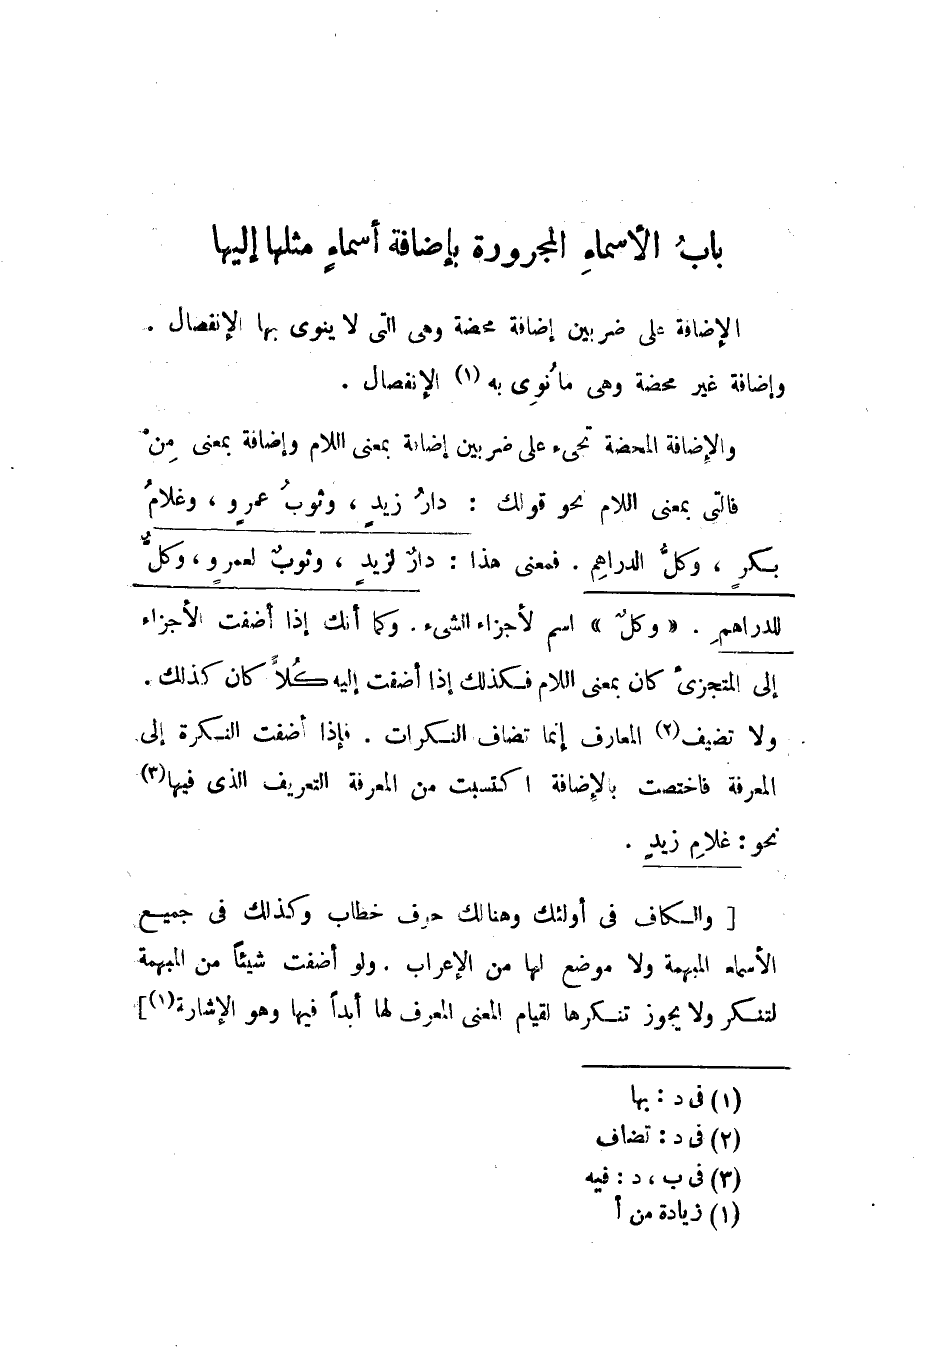 بابُ الأسماءِ المجرورة بإضافة أسماءٍ مثلها إليها
الإضافة على ضربين إضافة محضة وهى التى لا ينوى بها الإنفصال .
وإضافة غير محضة وهى ما نُوِى به (١) الإنفصال .
والإضافة المحضة تجىء على ضربين إضافة بمعنى اللام وإضافة بمعنى مِنْ
فالتى بمعنى اللام نحو قولك : دارُ زيدٍ ، وثوبُ عمرٍو ، وغلامُ
بكرٍ ، وكلُّ الدراهِم . فمعنى هذا : دارٌ لزيدٍ ، وثوبٌ لعمرٍو ، وكلٌّ
للدراهمِ . « وكلٌ » اسم لأجزاء الشىء . وكما أنك إذا أضفت الأجزاء
إلى المتجزىُ كان بمعنى اللام فكذلك إذا أضفت إليه كُلاًّ كان كذلك .
ولا تضيف(٢) المعارف إنما تضاف النكرات . فإذا أضفت النكرة إلى
المعرفة فاختصت بالإضافة اكتسبت من المعرفة التعريف الذى فيها(٣)
نحو : غلامِ زيدٍ .
[ والكاف فى أولئك وهنالك حرف خطاب وكذلك فى جميع
الأسماء المبهمة ولا موضع لها من الإعراب . ولو أضفت شيئاً من المبهمة
لتنكر ولا يجوز تنكرها لقيام المعنى المعرف لها أبداً فيها وهو الإشارة(١)]
(١) فى د : بها
(٢) فى د : تضاف
(٣) فى ب ، د : فيه
(١) زيادة من أ